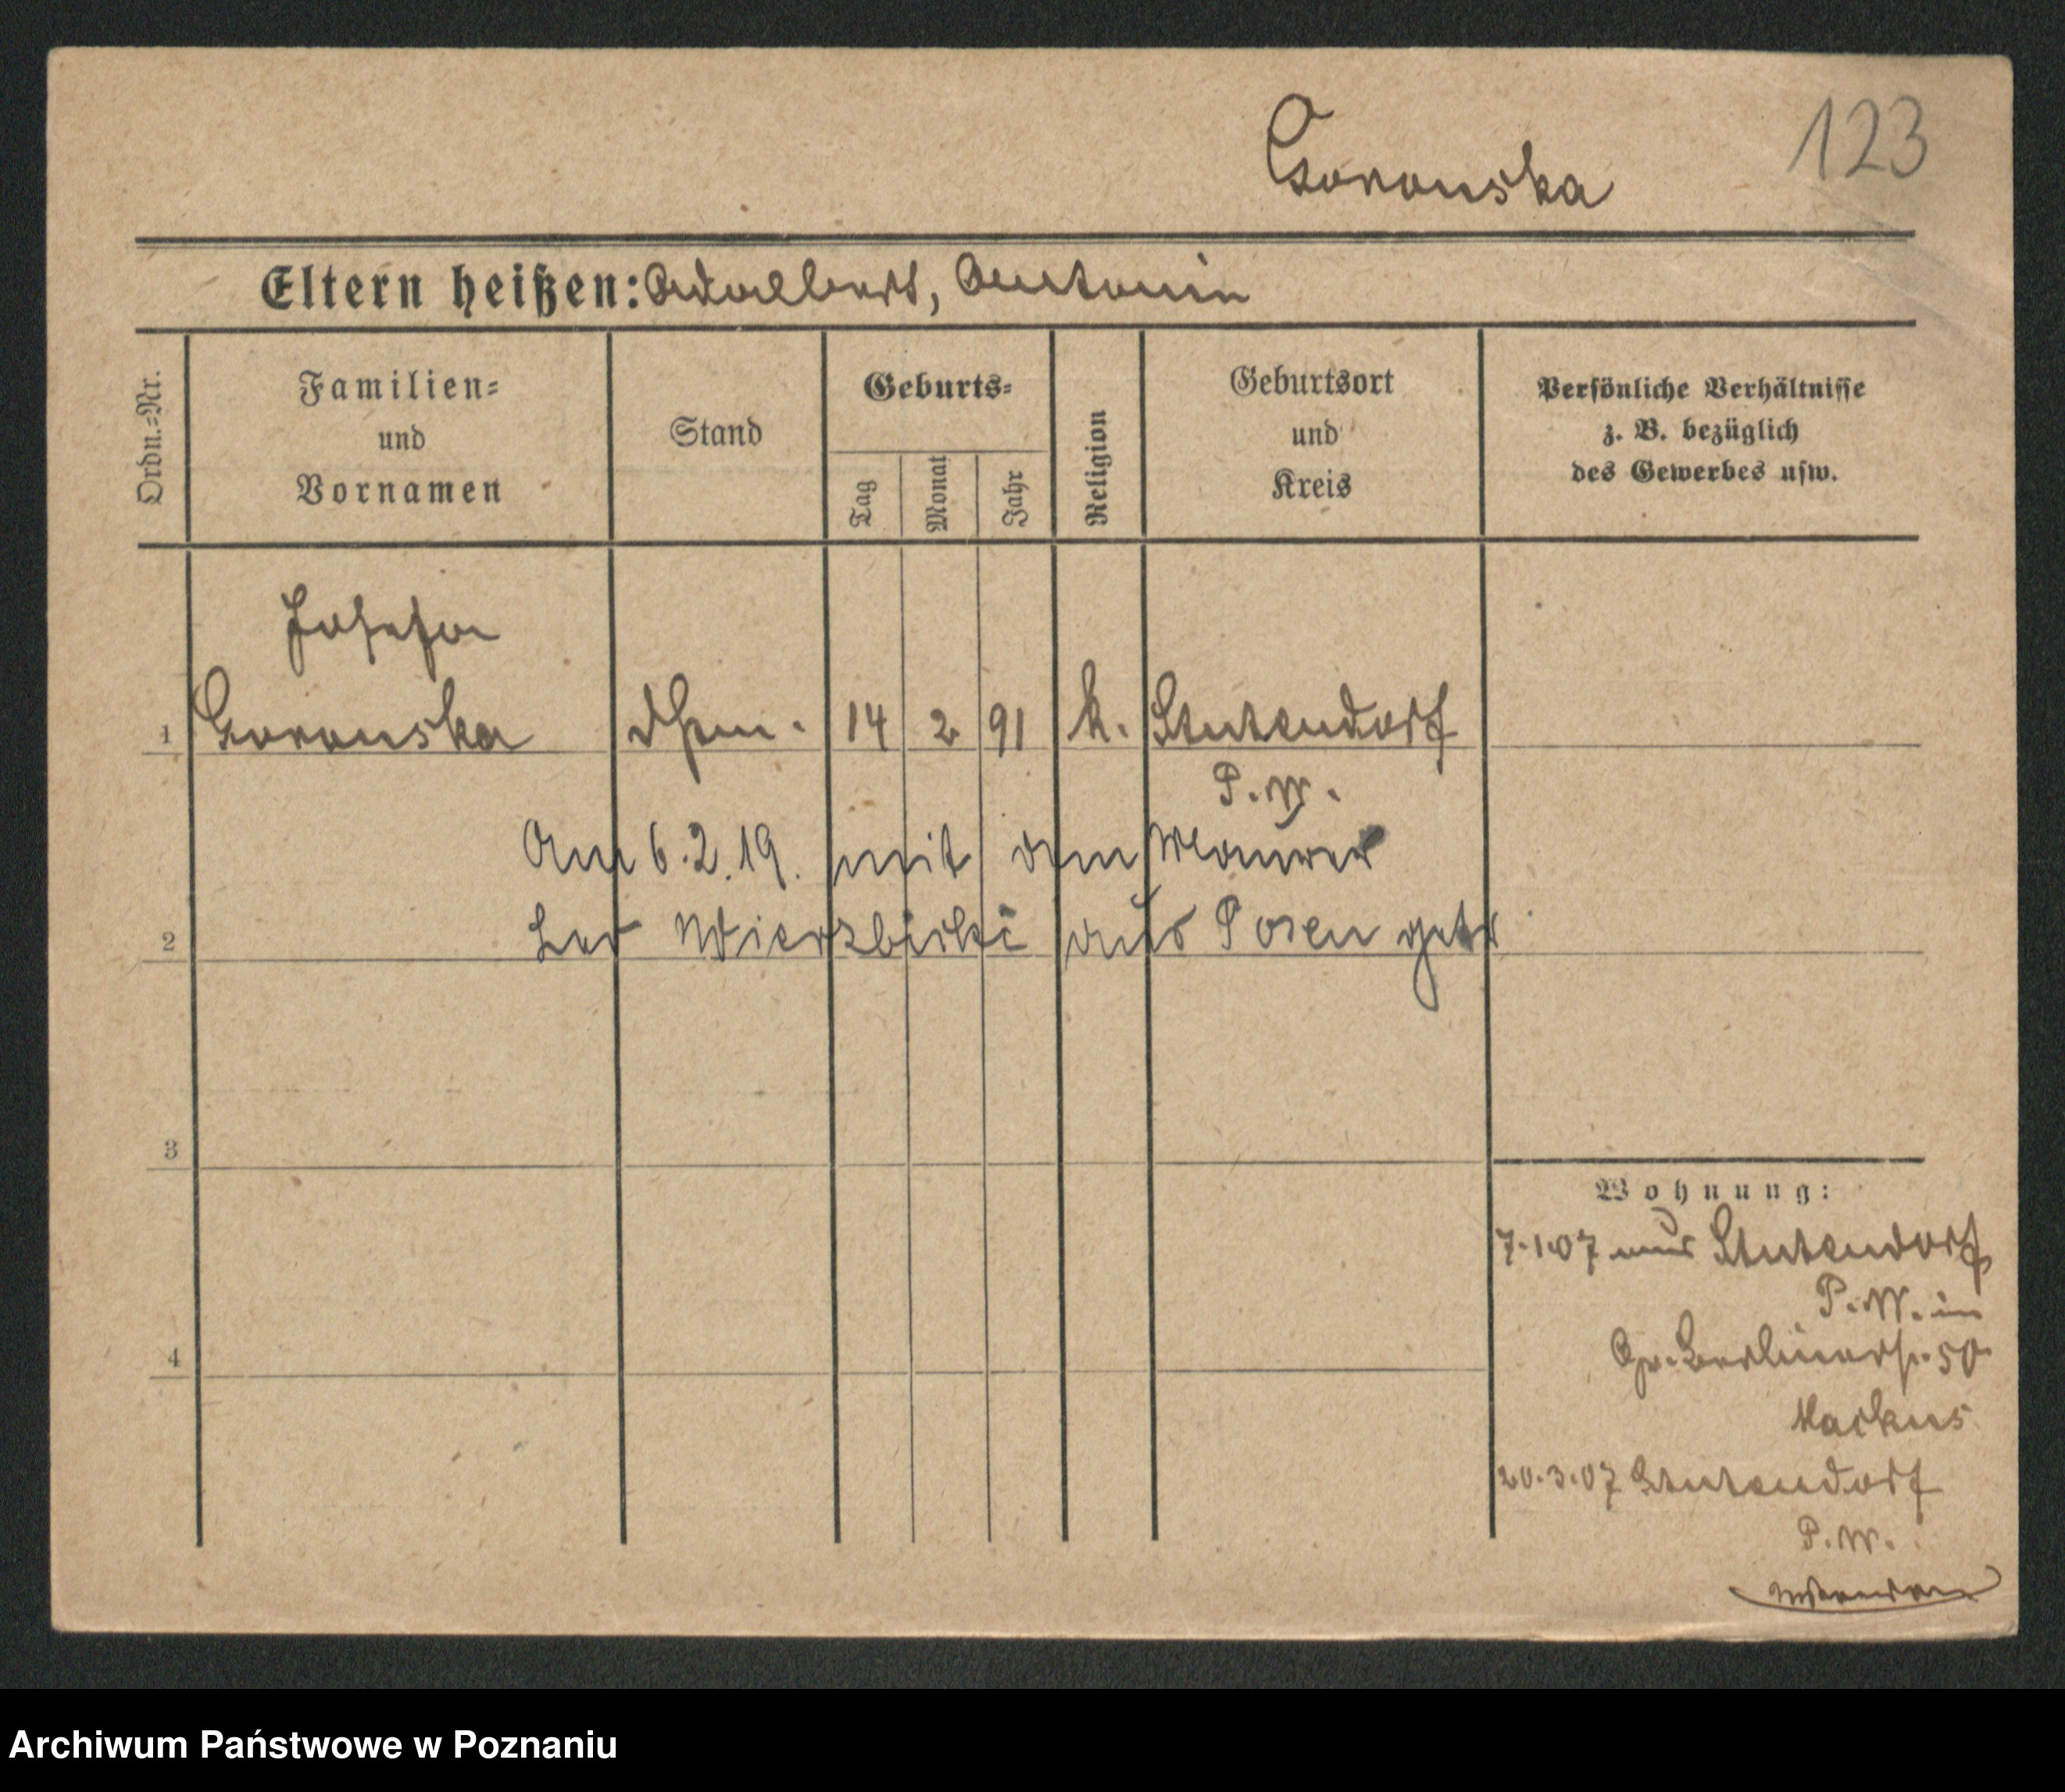 123
Eltern heißen: Adalbert, Antonin
Ordn.-Nr.
Familien-
und
Vornamen
Stand
Geburts-
Tag
Monat
Jahr
Religion
Geburtsort
und
Kreis
Persönliche Verhältnisse
z. B. bezüglich
des Gewerbes usw.
Josefa
1 14 2 91 k. Stutendorf
P. W.
Am 6.2.19. mit dem Maurer
Leo Wierzbicki aus Posen getr
2
3
4
Wohnung:
7.1.07 aus Stutendorf
P. W. in
Gr. Berlinerstr. 50
Markus
20.3.07 Stutendorf
P. W.
Archiwum Państwowe w Poznaniu